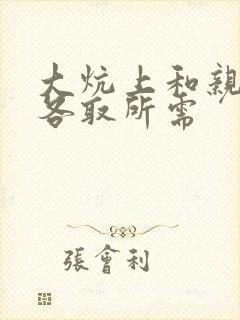 大炕上和親
各取所需
張會利